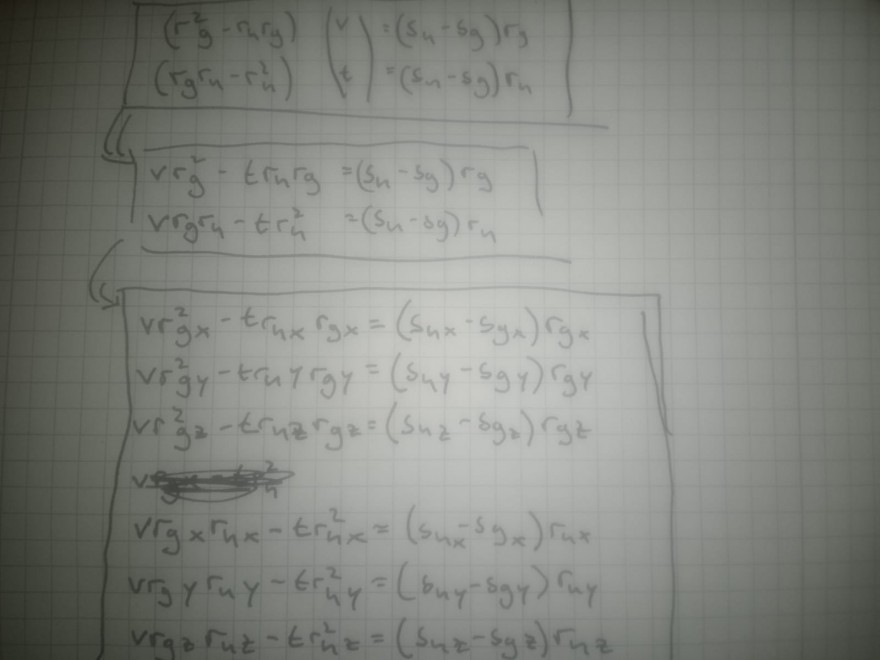 (r²g - rₕrg) (v = (sₕ - sg)rg
(rgrₕ - r²ₕ) (t) = (sₕ - sg)rₕ
vr²g - trₕrg = (sₕ - sg)rg
vrgrₕ - tr²ₕ = (sₕ - sg)rₕ
vr²gx - trₕx rgx = (sₕx - sgx)rgx
vr²gy - trₕy rgy = (sₕy - sgy)rgy
vr²gz - trₕz rgz = (sₕz - sgz)rgz
vrgx rₕx - tr²ₕx = (sₕx - sgx)rₕx
vrgy rₕy - tr²ₕy = (sₕy - sgy)rₕy
vrgz rₕz - tr²ₕz = (sₕz - sgz)rₕz